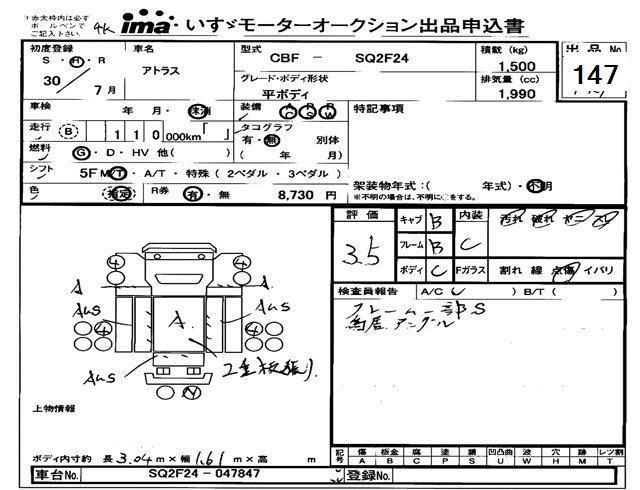 ↑赤太枠内は必ず
ボールペンで
ご記入下さい。
4K
ima いすゞモーターオークション出品申込書
初度登録 S・H・R 30/7月
車名 アトラス
型式 CBF － SQ2F24
積載 (kg) 1,500
出品No. 147
グレード・ボディ形状 平ボディ
排気量 (cc) 1,990
車検 年 月・抹消
装備 AC PS PW
特記事項
走行 B 110,000km「 」
タコグラフ 有・無 別体
( 年 月)
燃料 G・D・HV 他( )
シフト 5F M/T・A/T・特殊 ( 2ペダル ・ 3ペダル )
架装物年式：( 年式)・不明
※不明の場合は、不明に○をする。
色 指定
R券 有・無 8,730 円
評価 3.5
キャブ B
フレーム B
ボディ C
内装 C
汚れ 破れ ヤニ スレ
Fガラス 割れ 線 点傷 イバリ
検査員報告 A/C( ) B/T( )
フレーム一部S
鳥居アングル
4 4
A A
AUS AUS
A
4 4
AUS
2重板張り
N
上物情報
ボディ内寸約 長 3.04 m×幅 1.61 m×高 m
記号 傷 板金 腐 塗 錆 凹凸曲 波 穴 跡 レンズ割
A B C P S U W H M T
車台No. SQ2F24－047847
登録No.